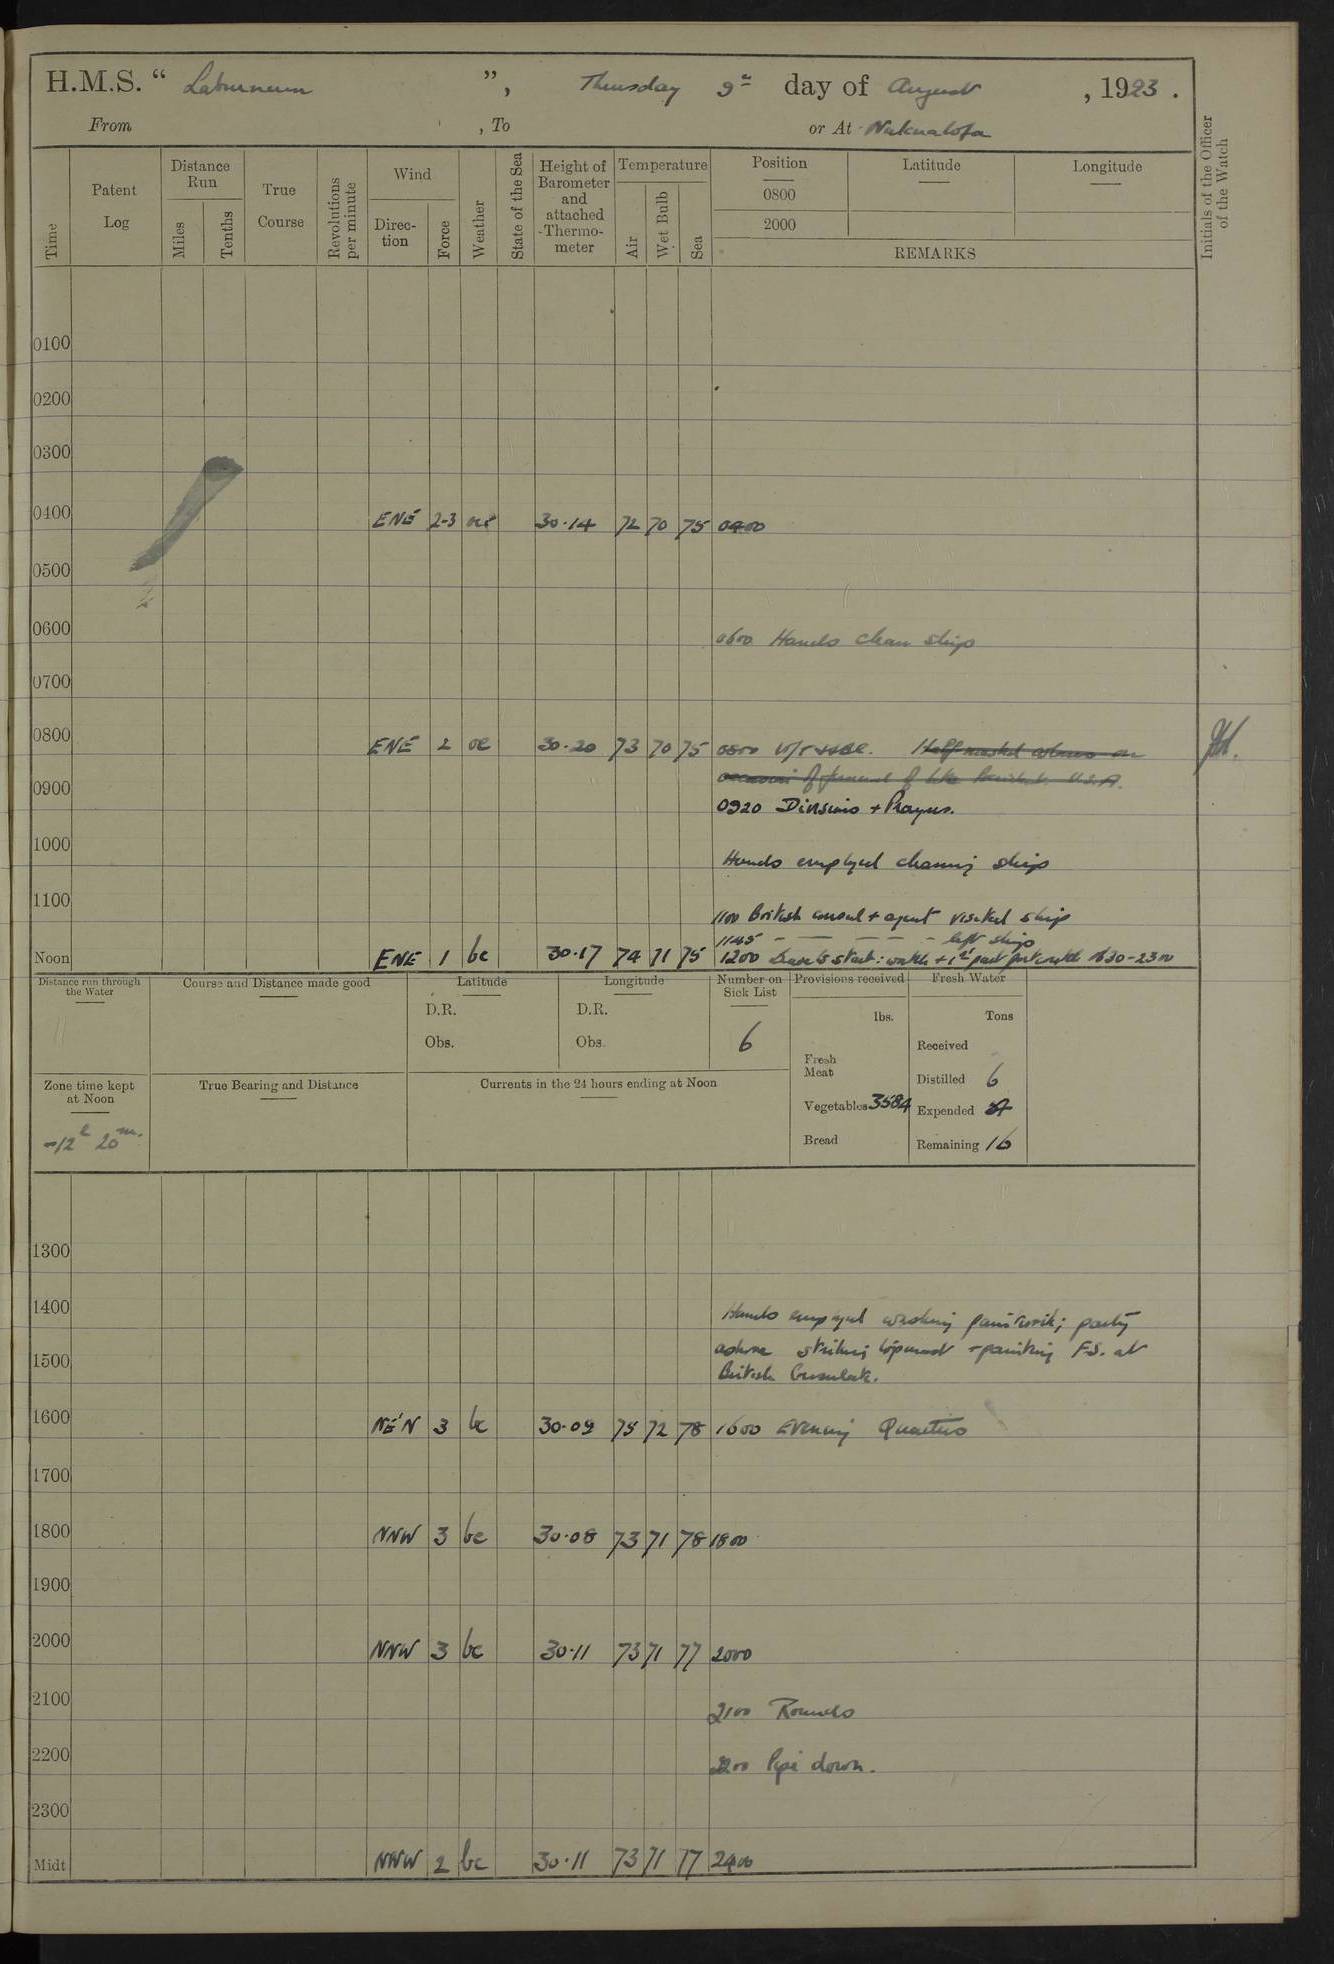 H.M.S. “ Laburnum ”, Thursday 9th day of August , 1923 .
From , To or At Nukualofa
Time
Patent Log
Distance Run
Miles
Tenths
True Course
Revolutions per minute
Wind
Direction
Force
Weather
State of the Sea
Height of Barometer and attached Thermometer
Temperature
Air
Wet Bulb
Sea
Position
0800
2000
Latitude
Longitude
REMARKS
Initials of the Officer of the Watch
0100
0200
0300
0400 ENE 2-3 oc 30.14 72 70 75 0400
0500
0600 0600 Hands clean ship
0700
0800 ENE 2 oc 30.20 73 70 75 0800 Half masted colours on
occasion of funeral of late President U.S.A.
0900
0920 Divisions + Prayers.
1000
Hands employed cleaning ship
1100
1100 British consul + agent visited ship
1145 – — — – – left ship
Noon ENE 1 bc 30.17 74 71 75 1200 Leave to starb: watch + 1st part port watch 1630-2300
Distance run through the Water
Course and Distance made good
Latitude
D.R.
Obs.
Longitude
D.R.
Obs.
Number on Sick List
6
Provisions received
lbs.
Fresh Meat
Vegetables 358½
Bread
Fresh Water
Tons
Received
Distilled 6
Expended
Remaining 16
Zone time kept at Noon
-12h 20m.
True Bearing and Distance
Currents in the 24 hours ending at Noon
1300
1400
Hands employed washing paintwork; party
ashore striking topmast + painting F.S. at
1500
British Consulate.
1600 NE'N 3 bc 30.09 75 72 78 1600 Evening Quarters
1700
1800 NNW 3 bc 30.08 73 71 78 1800
1900
2000 NNW 3 bc 30.11 73 71 77 2000
2100 2100 Rounds
2200 2200 Pipe down.
2300
Midt NNW 2 bc 30.11 73 71 77 2400